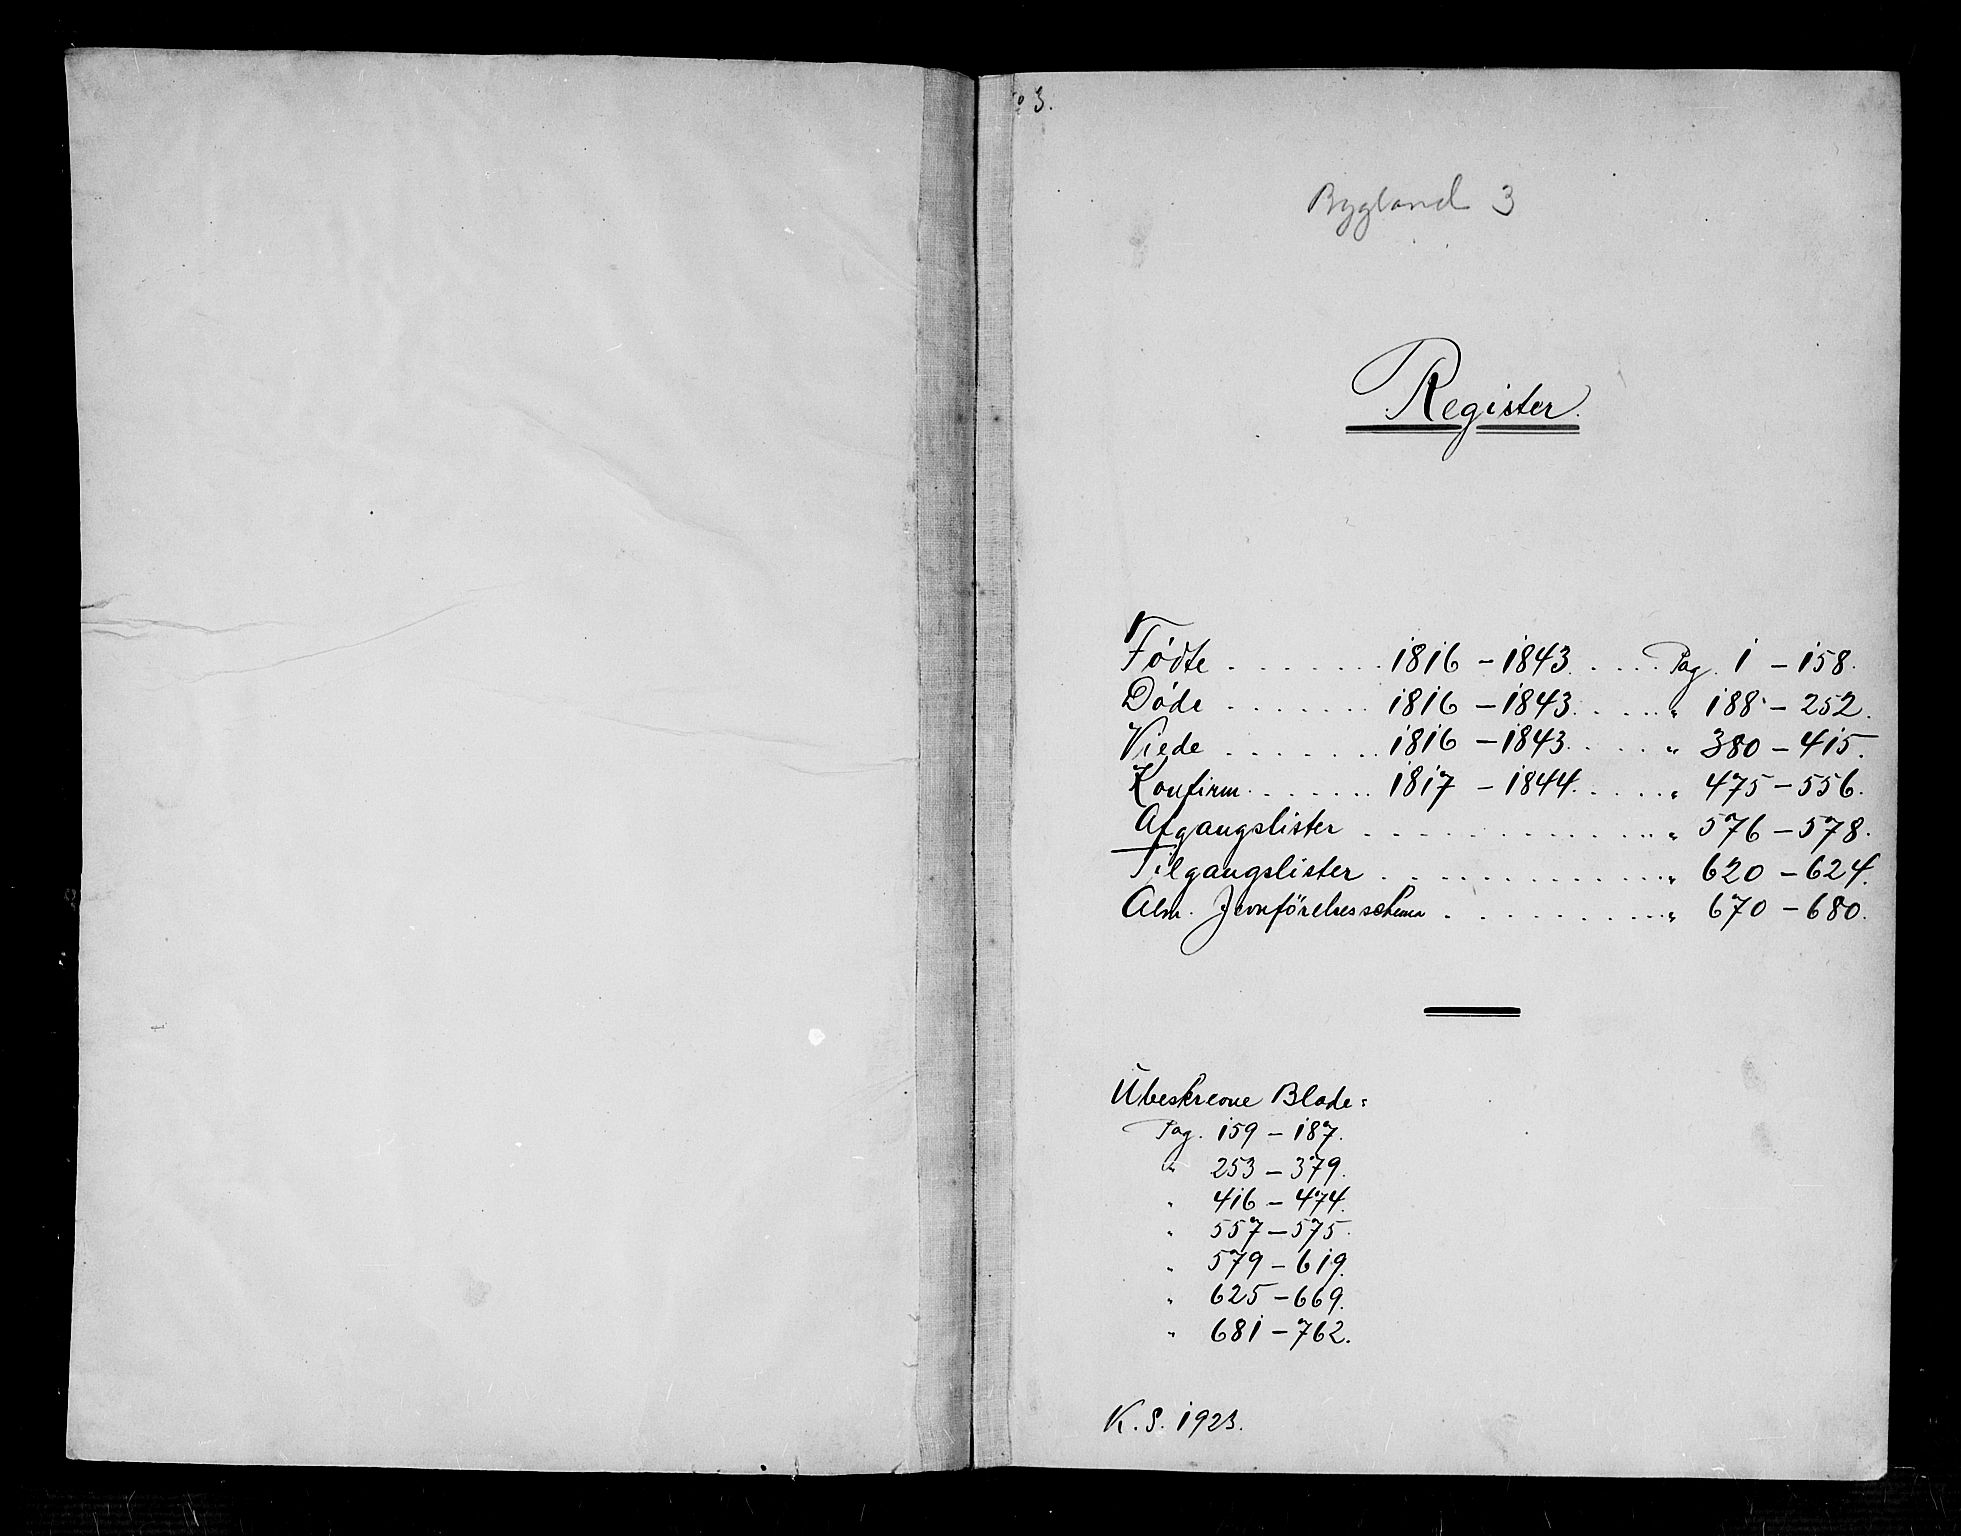 º 3.
Bygland 3
Register.
Fødte ........ 1816 - 1843 ..... Pag. 1 - 158.
Døde ....... 1816 - 1843 ..... " 188 - 252.
Viede ....... 1816 - 1843 ..... " 380 - 415.
Konfirm ....... 1817 - 1844 ..... " 475 - 556.
Afgangslister .............. " 576 - 578.
Tilgangslister .............. " 620 - 624.
Alm. Jevnförelsesschema ........... " 670 - 680.
Ubeskrevne Blade:
Pag. 159 - 187.
" 253 - 379.
" 416 - 474.
" 557 - 575.
" 579 - 619.
" 625 - 669.
" 681 - 762.
K. S. 1923.